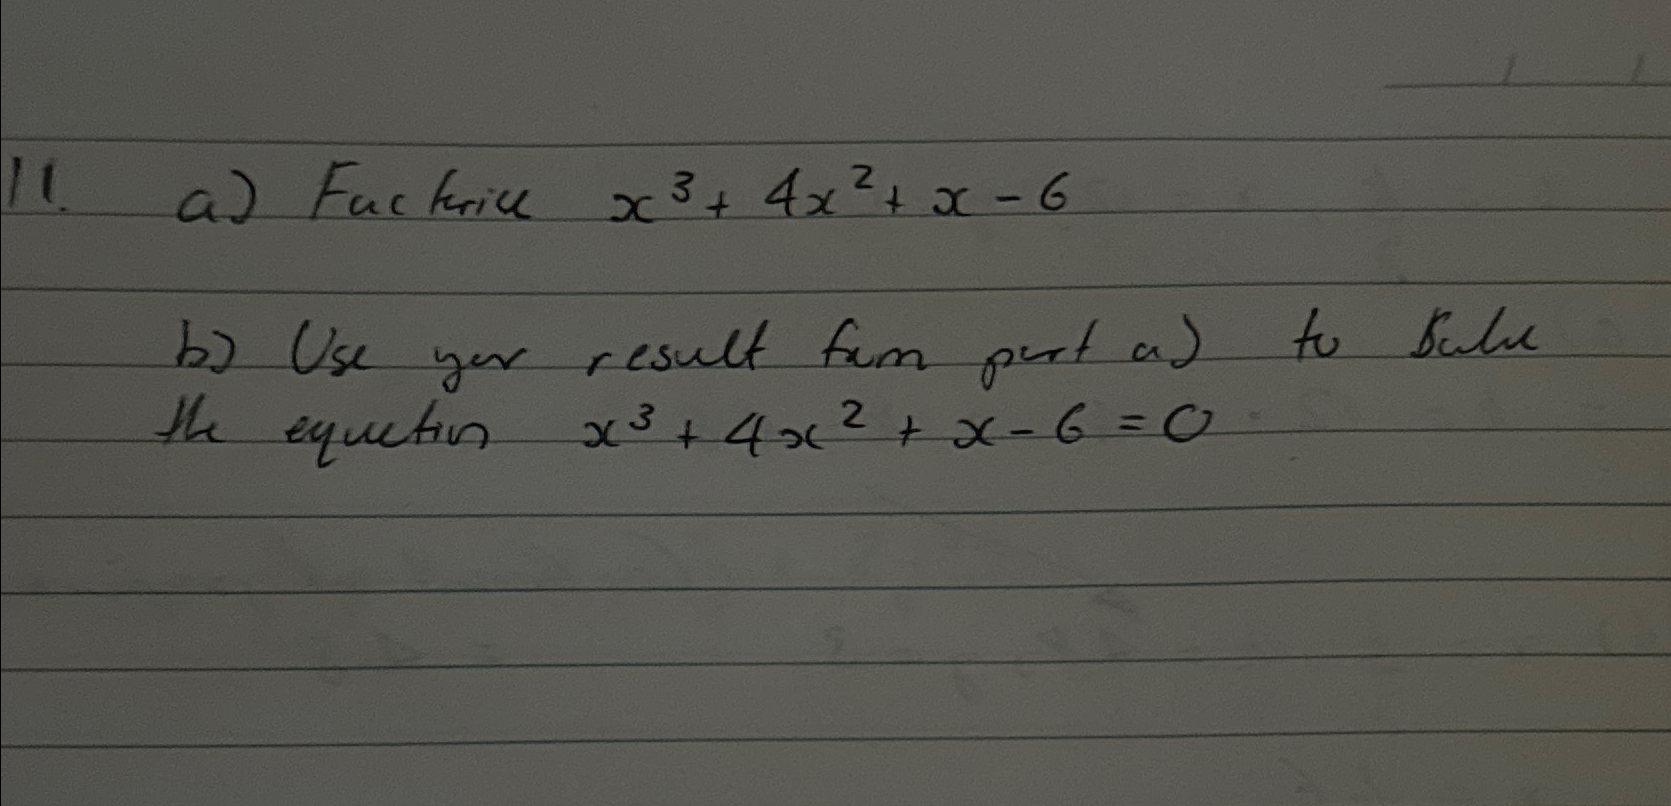 11. a) Factorise x³ + 4x² + x - 6
b) Use your result from part a) to Solve
the equation x³ + 4x² + x - 6 = 0